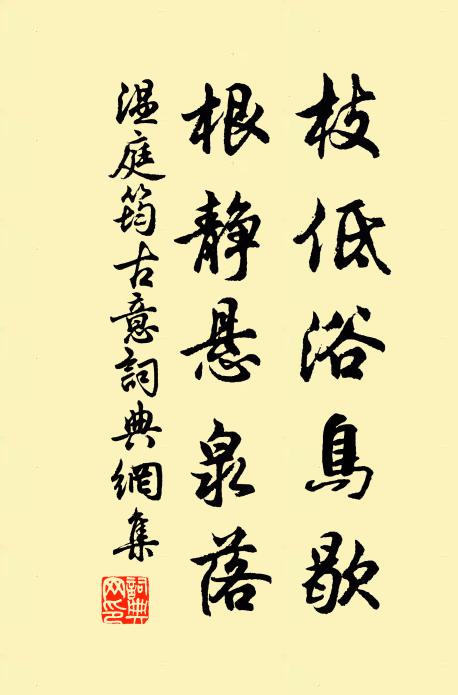 枝低浴鳥歇
根静悬泉落
温庭筠古意詞典網集
詞典